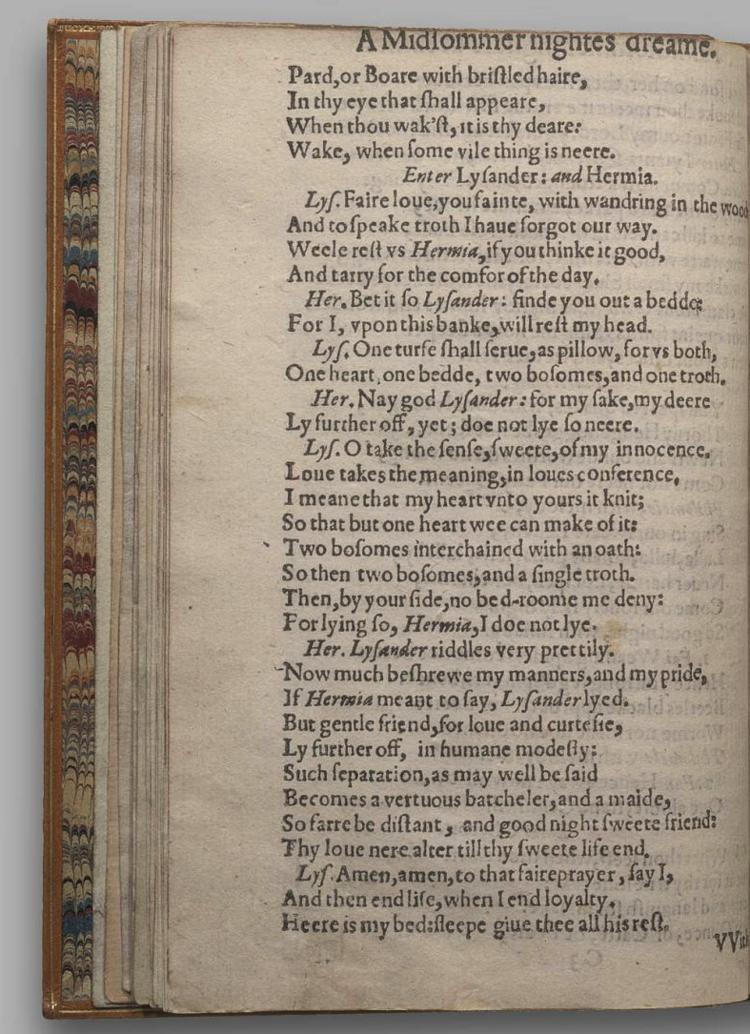 A Midſommer nightes dreame.
Pard, or Boare with briſtled haire,
In thy eye that ſhall appeare,
When thou wak'ſt, it is thy deare:
Wake, when ſome vile thing is neere.
Enter Lyſander: and Hermia.
Lyſ. Faire loue, you fainte, with wandring in the wood
And to ſpeake troth I haue forgot our way.
Weele reſt vs Hermia, if you thinke it good,
And tarry for the comfor of the day.
Her. Bet it ſo Lyſander: finde you out a bedde:
For I, vpon this banke, will reſt my head.
Lyſ. One turfe ſhall ſerue, as pillow, for vs both,
One heart, one bedde, two boſomes, and one troth.
Her. Nay god Lyſander: for my ſake, my deere
Ly further off, yet; doe not lye ſo neere.
Lyſ. O take the ſenſe, ſweete, of my innocence,
Loue takes the meaning, in loues conference,
I meane that my heart vnto yours it knit;
So that but one heart wee can make of it:
Two boſomes interchained with an oath:
So then two boſomes, and a ſingle troth.
Then, by your ſide, no bed-roome me deny:
For lying ſo, Hermia, I doe not lye.
Her. Lyſander riddles very prettily.
Now much beſhrewe my manners, and my pride,
If Hermia meant to ſay, Lyſander lyed.
But gentle friend, for loue and curteſie,
Ly further off, in humane modeſty:
Such ſeparation, as may well be ſaid
Becomes a vertuous batcheler, and a maide,
So farre be diſtant, and good night ſweete friend:
Thy loue nere alter till thy ſweete life end.
Lyſ. Amen, amen, to that faire prayer, ſay I,
And then end life, when I end loyalty.
Heere is my bed: ſleepe giue thee all his reſt.